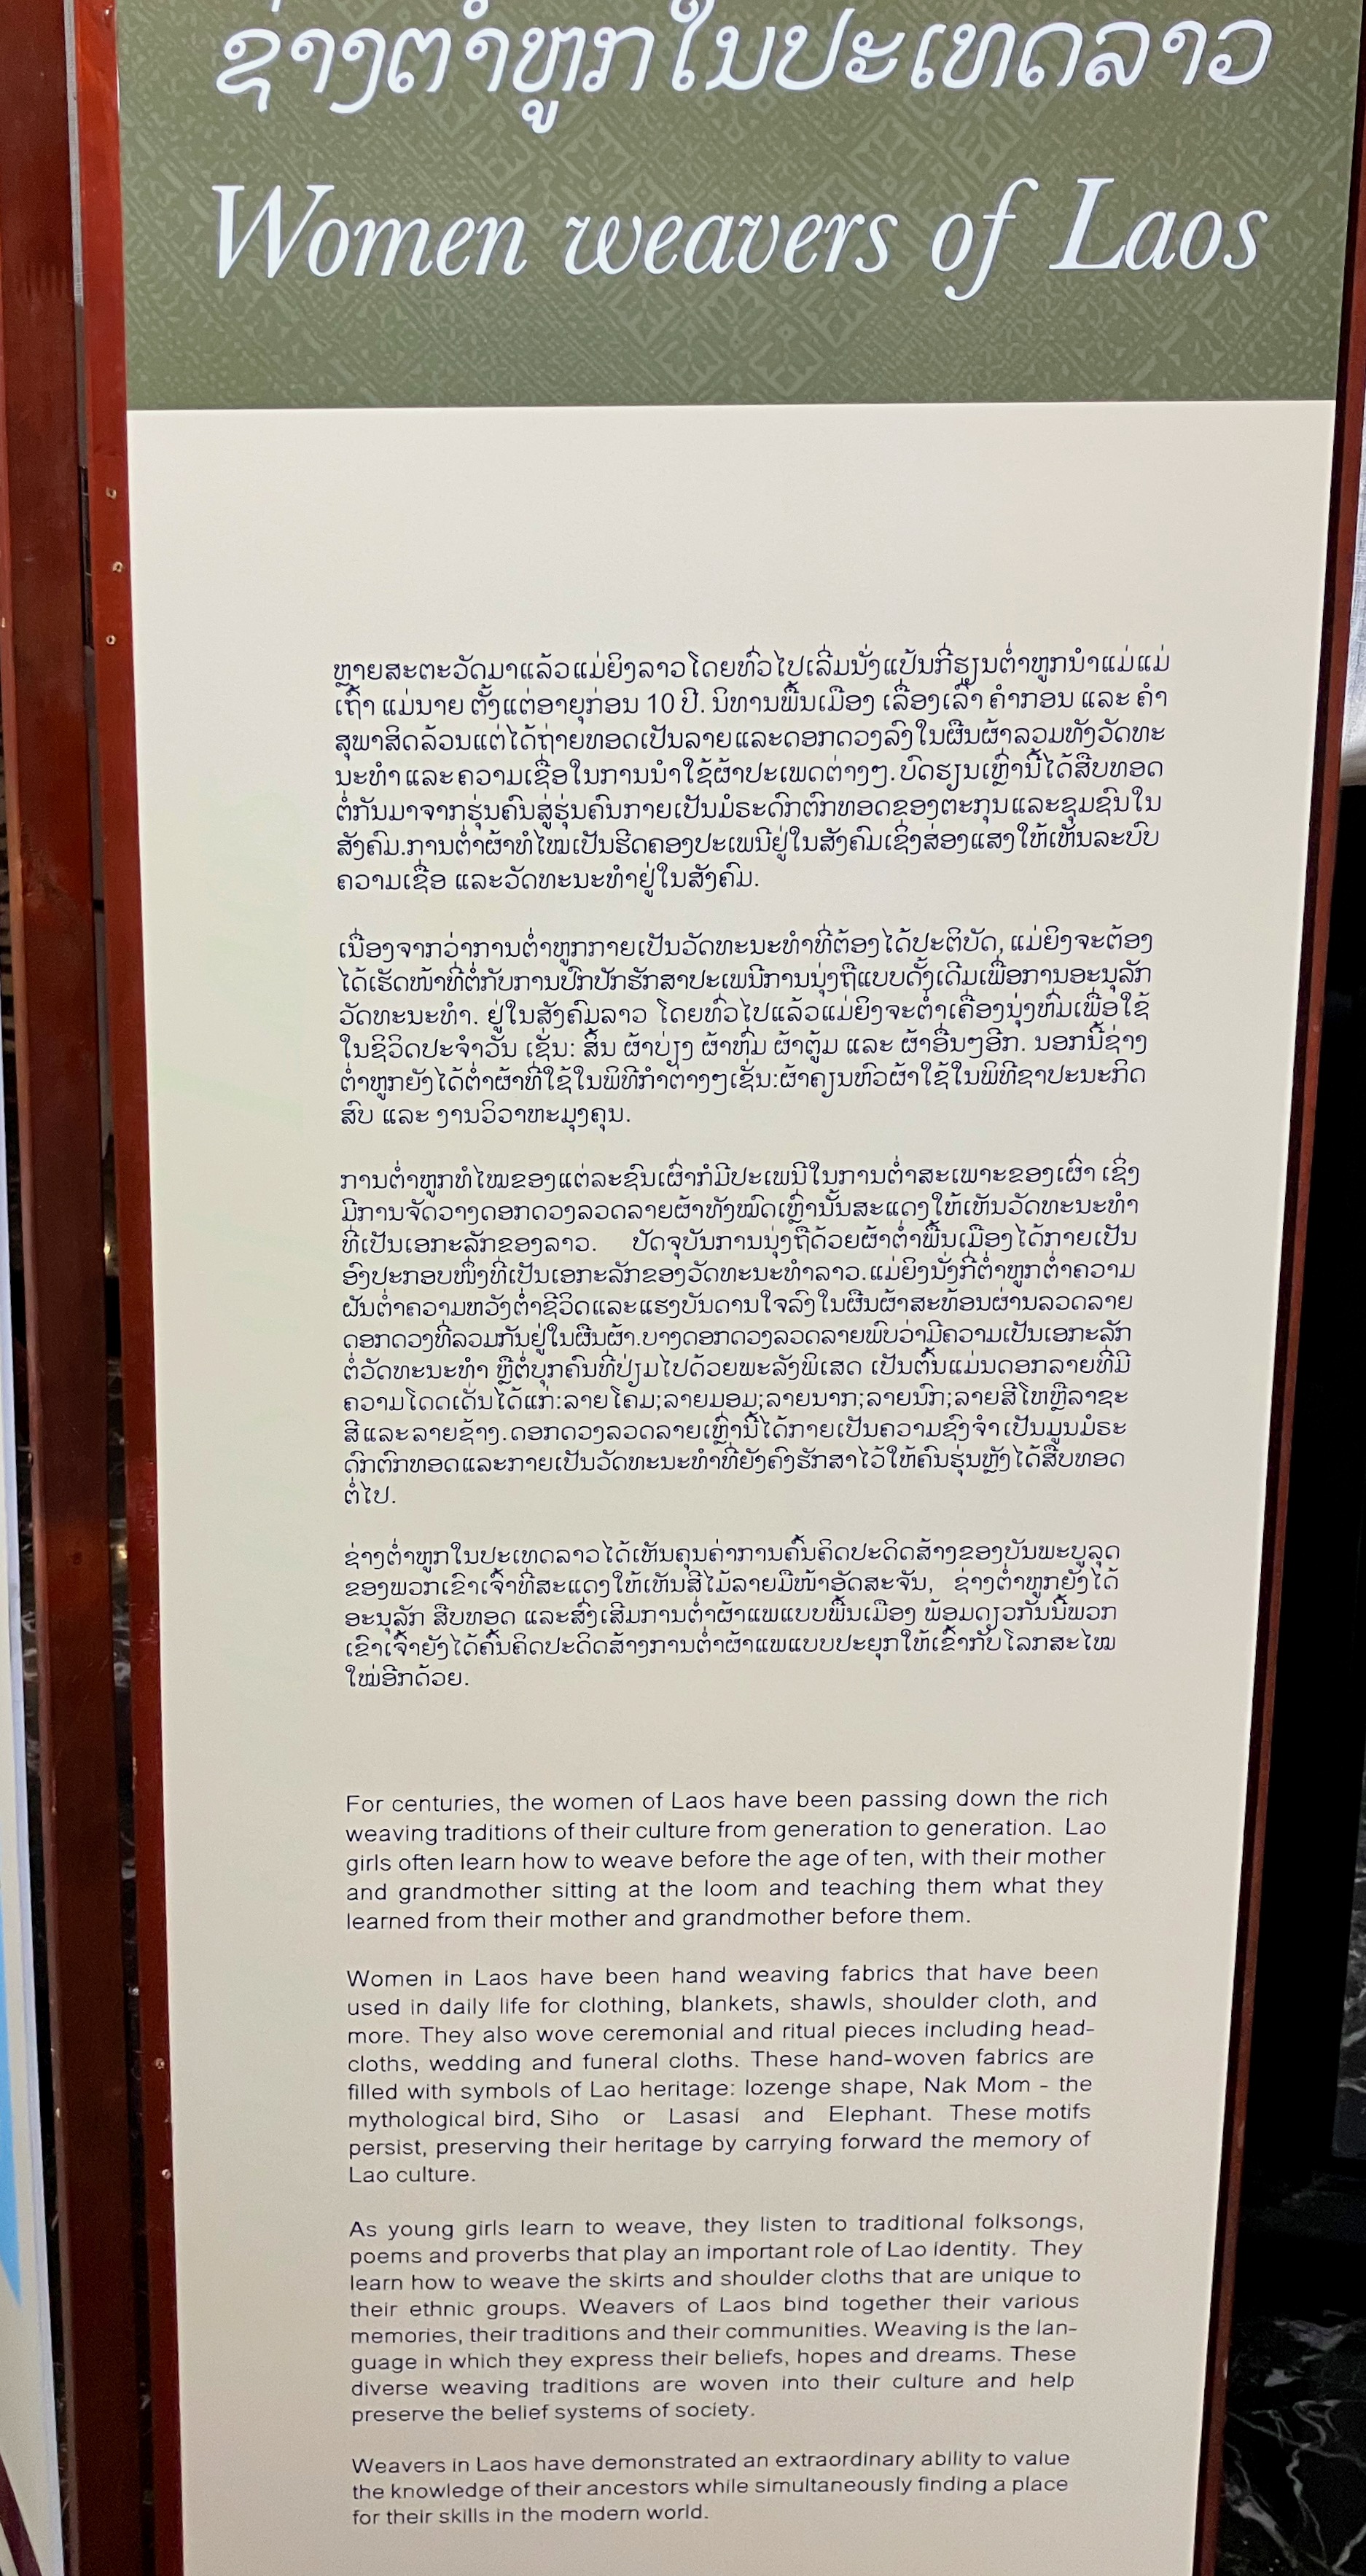 ຊ່າງຕໍ່າຫູກໃນປະເທດລາວ
Women weavers of Laos
ຫຼາຍສະຕະວັດມາແລ້ວແມ່ຍິງລາວໂດຍທົ່ວໄປເລີ່ມນັ່ງແປ້ນກີ່ຮຽນຕໍ່າຫູກນໍາແມ່ແມ່
ເຖົ້າ ແມ່ນາຍ ຕັ້ງແຕ່ອາຍຸກ່ອນ 10 ປີ. ນິທານພື້ນເມືອງ ເລື່ອງເລົ່າ ຄໍາກອນ ແລະ ຄໍາ
ສຸພາສິດລ້ວນແຕ່ໄດ້ຖ່າຍທອດເປັນລາຍແລະດອກດວງລົງໃນຜືນຜ້າລວມທັງວັດທະ
ນະທໍາ ແລະ ຄວາມເຊື່ອໃນການນໍາໃຊ້ຜ້າປະເພດຕ່າງໆ. ບົດຮຽນເຫຼົ່ານີ້ໄດ້ສືບທອດ
ຕໍ່ກັນມາຈາກຮຸ່ນຄົນສູ່ຮຸ່ນຄົນກາຍເປັນມໍຣະດົກຕົກທອດຂອງຕະກຸນແລະຊຸມຊົນໃນ
ສັງຄົມ.ການຕໍ່າຜ້າທໍໄໝເປັນຮີດຄອງປະເພນີຢູ່ໃນສັງຄົມເຊິ່ງສ່ອງແສງໃຫ້ເຫັນລະບົບ
ຄວາມເຊື່ອ ແລະວັດທະນະທໍາຢູ່ໃນສັງຄົມ.
ເນື່ອງຈາກວ່າການຕໍ່າຫູກກາຍເປັນວັດທະນະທໍາທີ່ຕ້ອງໄດ້ປະຕິບັດ, ແມ່ຍິງຈະຕ້ອງ
ໄດ້ເຮັດໜ້າທີ່ຕໍ່ກັບການປົກປັກຮັກສາປະເພນີການນຸ່ງຖືແບບດັ້ງເດີມເພື່ອການອະນຸລັກ
ວັດທະນະທໍາ. ຢູ່ໃນສັງຄົມລາວ ໂດຍທົ່ວໄປແລ້ວແມ່ຍິງຈະຕໍ່າເຄື່ອງນຸ່ງຫົ່ມເພື່ອໃຊ້
ໃນຊິວິດປະຈໍາວັນ ເຊັ່ນ: ສິ້ນ ຜ້າບ່ຽງ ຜ້າຫົ່ມ ຜ້າຕູ້ມ ແລະ ຜ້າອື່ນໆອີກ. ນອກນີ້ຊ່າງ
ຕໍ່າຫູກຍັງໄດ້ຕໍ່າຜ້າທີ່ໃຊ້ໃນພິທີກໍາຕ່າງໆເຊັ່ນ:ຜ້າຄຽນຫົວຜ້າໃຊ້ໃນພິທີຊາປະນະກິດ
ສົບ ແລະ ງານວິວາຫະມຸງຄຸນ.
ການຕໍ່າຫູກທໍໄໝຂອງແຕ່ລະຊົນເຜົ່າກໍມີປະເພນີໃນການຕໍ່າສະເພາະຂອງເຜົ່າ ເຊິ່ງ
ມີການຈັດວາງດອກດວງລວດລາຍຜ້າທັງໝົດເຫຼົ່ານັ້ນສະແດງໃຫ້ເຫັນວັດທະນະທໍາ
ທີ່ເປັນເອກະລັກຂອງລາວ. ປັດຈຸບັນການນຸ່ງຖືດ້ວຍຜ້າຕໍ່າພື້ນເມືອງໄດ້ກາຍເປັນ
ອົງປະກອບໜຶ່ງທີ່ເປັນເອກະລັກຂອງວັດທະນະທໍາລາວ.ແມ່ຍິງນັ່ງກີ່ຕໍ່າຫູກຕໍ່າຄວາມ
ຝັນຕໍ່າຄວາມຫວັງຕໍ່າຊີວິດແລະແຮງບັນດານໃຈລົງໃນຜືນຜ້າສະທ້ອນຜ່ານລວດລາຍ
ດອກດວງທີ່ລວມກັນຢູ່ໃນຜືນຜ້າ.ບາງດອກດວງລວດລາຍພົບວ່າມີຄວາມເປັນເອກະລັກ
ຕໍ່ວັດທະນະທໍາ ຫຼືຕໍ່ບຸກຄົນທີ່ປ່ຽມໄປດ້ວຍພະລັງພິເສດ ເປັນຕົ້ນແມ່ນດອກລາຍທີ່ມີ
ຄວາມໂດດເດັ່ນໄດ້ແກ່:ລາຍໂຄມ;ລາຍມອມ;ລາຍນາກ;ລາຍນົກ;ລາຍສີໂຫຫຼືລາຊະ
ສີ ແລະ ລາຍຊ້າງ.ດອກດວງລວດລາຍເຫຼົ່ານີ້ໄດ້ກາຍເປັນຄວາມຊົງຈໍາ ເປັນມູນມໍຣະ
ດົກຕົກທອດແລະກາຍເປັນວັດທະນະທໍາທີ່ຍັງຄົງຮັກສາໄວ້ໃຫ້ຄົນຮຸ່ນຫຼັງໄດ້ສືບທອດ
ຕໍ່ໄປ.
ຊ່າງຕໍ່າຫູກໃນປະເທດລາວໄດ້ເຫັນຄຸນຄ່າການຄົ້ນຄິດປະດິດສ້າງຂອງບັນພະບູລຸດ
ຂອງພວກເຂົາເຈົ້າທີ່ສະແດງໃຫ້ເຫັນສີໄມ້ລາຍມືໜ້າອັດສະຈັນ, ຊ່າງຕໍ່າຫູກຍັງໄດ້
ອະນຸລັກ ສືບທອດ ແລະສົ່ງເສີມການຕໍ່າຜ້າແພແບບພື້ນເມືອງ ພ້ອມດຽວກັນນີ້ພວກ
ເຂົາເຈົ້າຍັງໄດ້ຄົ້ນຄິດປະດິດສ້າງການຕໍ່າຜ້າແພແບບປະຍຸກໃຫ້ເຂົ້າກັບໂລກສະໄໝ
ໃໝ່ອີກດ້ວຍ.
For centuries, the women of Laos have been passing down the rich
weaving traditions of their culture from generation to generation. Lao
girls often learn how to weave before the age of ten, with their mother
and grandmother sitting at the loom and teaching them what they
learned from their mother and grandmother before them.
Women in Laos have been hand weaving fabrics that have been
used in daily life for clothing, blankets, shawls, shoulder cloth, and
more. They also wove ceremonial and ritual pieces including head-
cloths, wedding and funeral cloths. These hand-woven fabrics are
filled with symbols of Lao heritage: lozenge shape, Nak Mom - the
mythological bird, Siho or Lasasi and Elephant. These motifs
persist, preserving their heritage by carrying forward the memory of
Lao culture.
As young girls learn to weave, they listen to traditional folksongs,
poems and proverbs that play an important role of Lao identity. They
learn how to weave the skirts and shoulder cloths that are unique to
their ethnic groups. Weavers of Laos bind together their various
memories, their traditions and their communities. Weaving is the lan-
guage in which they express their beliefs, hopes and dreams. These
diverse weaving traditions are woven into their culture and help
preserve the belief systems of society.
Weavers in Laos have demonstrated an extraordinary ability to value
the knowledge of their ancestors while simultaneously finding a place
for their skills in the modern world.